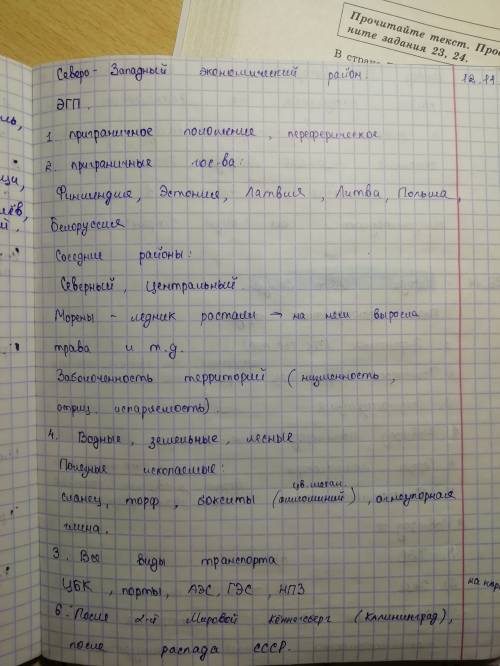 Прочитайте текст. Про
ните задания 23, 24.
В стра
12.11
Северо - Западный экономический район.
ЭГП.
1. приграничное положение, переферическое
2. приграничные гос-ва:
Финляндия, Эстония, Латвия, Литва, Польша,
Белоруссия
Соседние районы:
Северный, Центральный.
Морены - ледник растаял → на нём выросла
трава и т.д.
Заболоченность территорий (низменность,
отриц. испаряемость).
4. Водные, земельные, лесные
Полезные ископаемые:
цв. метал.
сланец, торф, бокситы (аллюминий), огнеупорная
глина.
3. Все виды транспорта
ЦБК, порты, АЭС, ГЭС, НПЗ
6. После 2-й Мировой Кёнигсберг (Калининград),
после распада СССР.